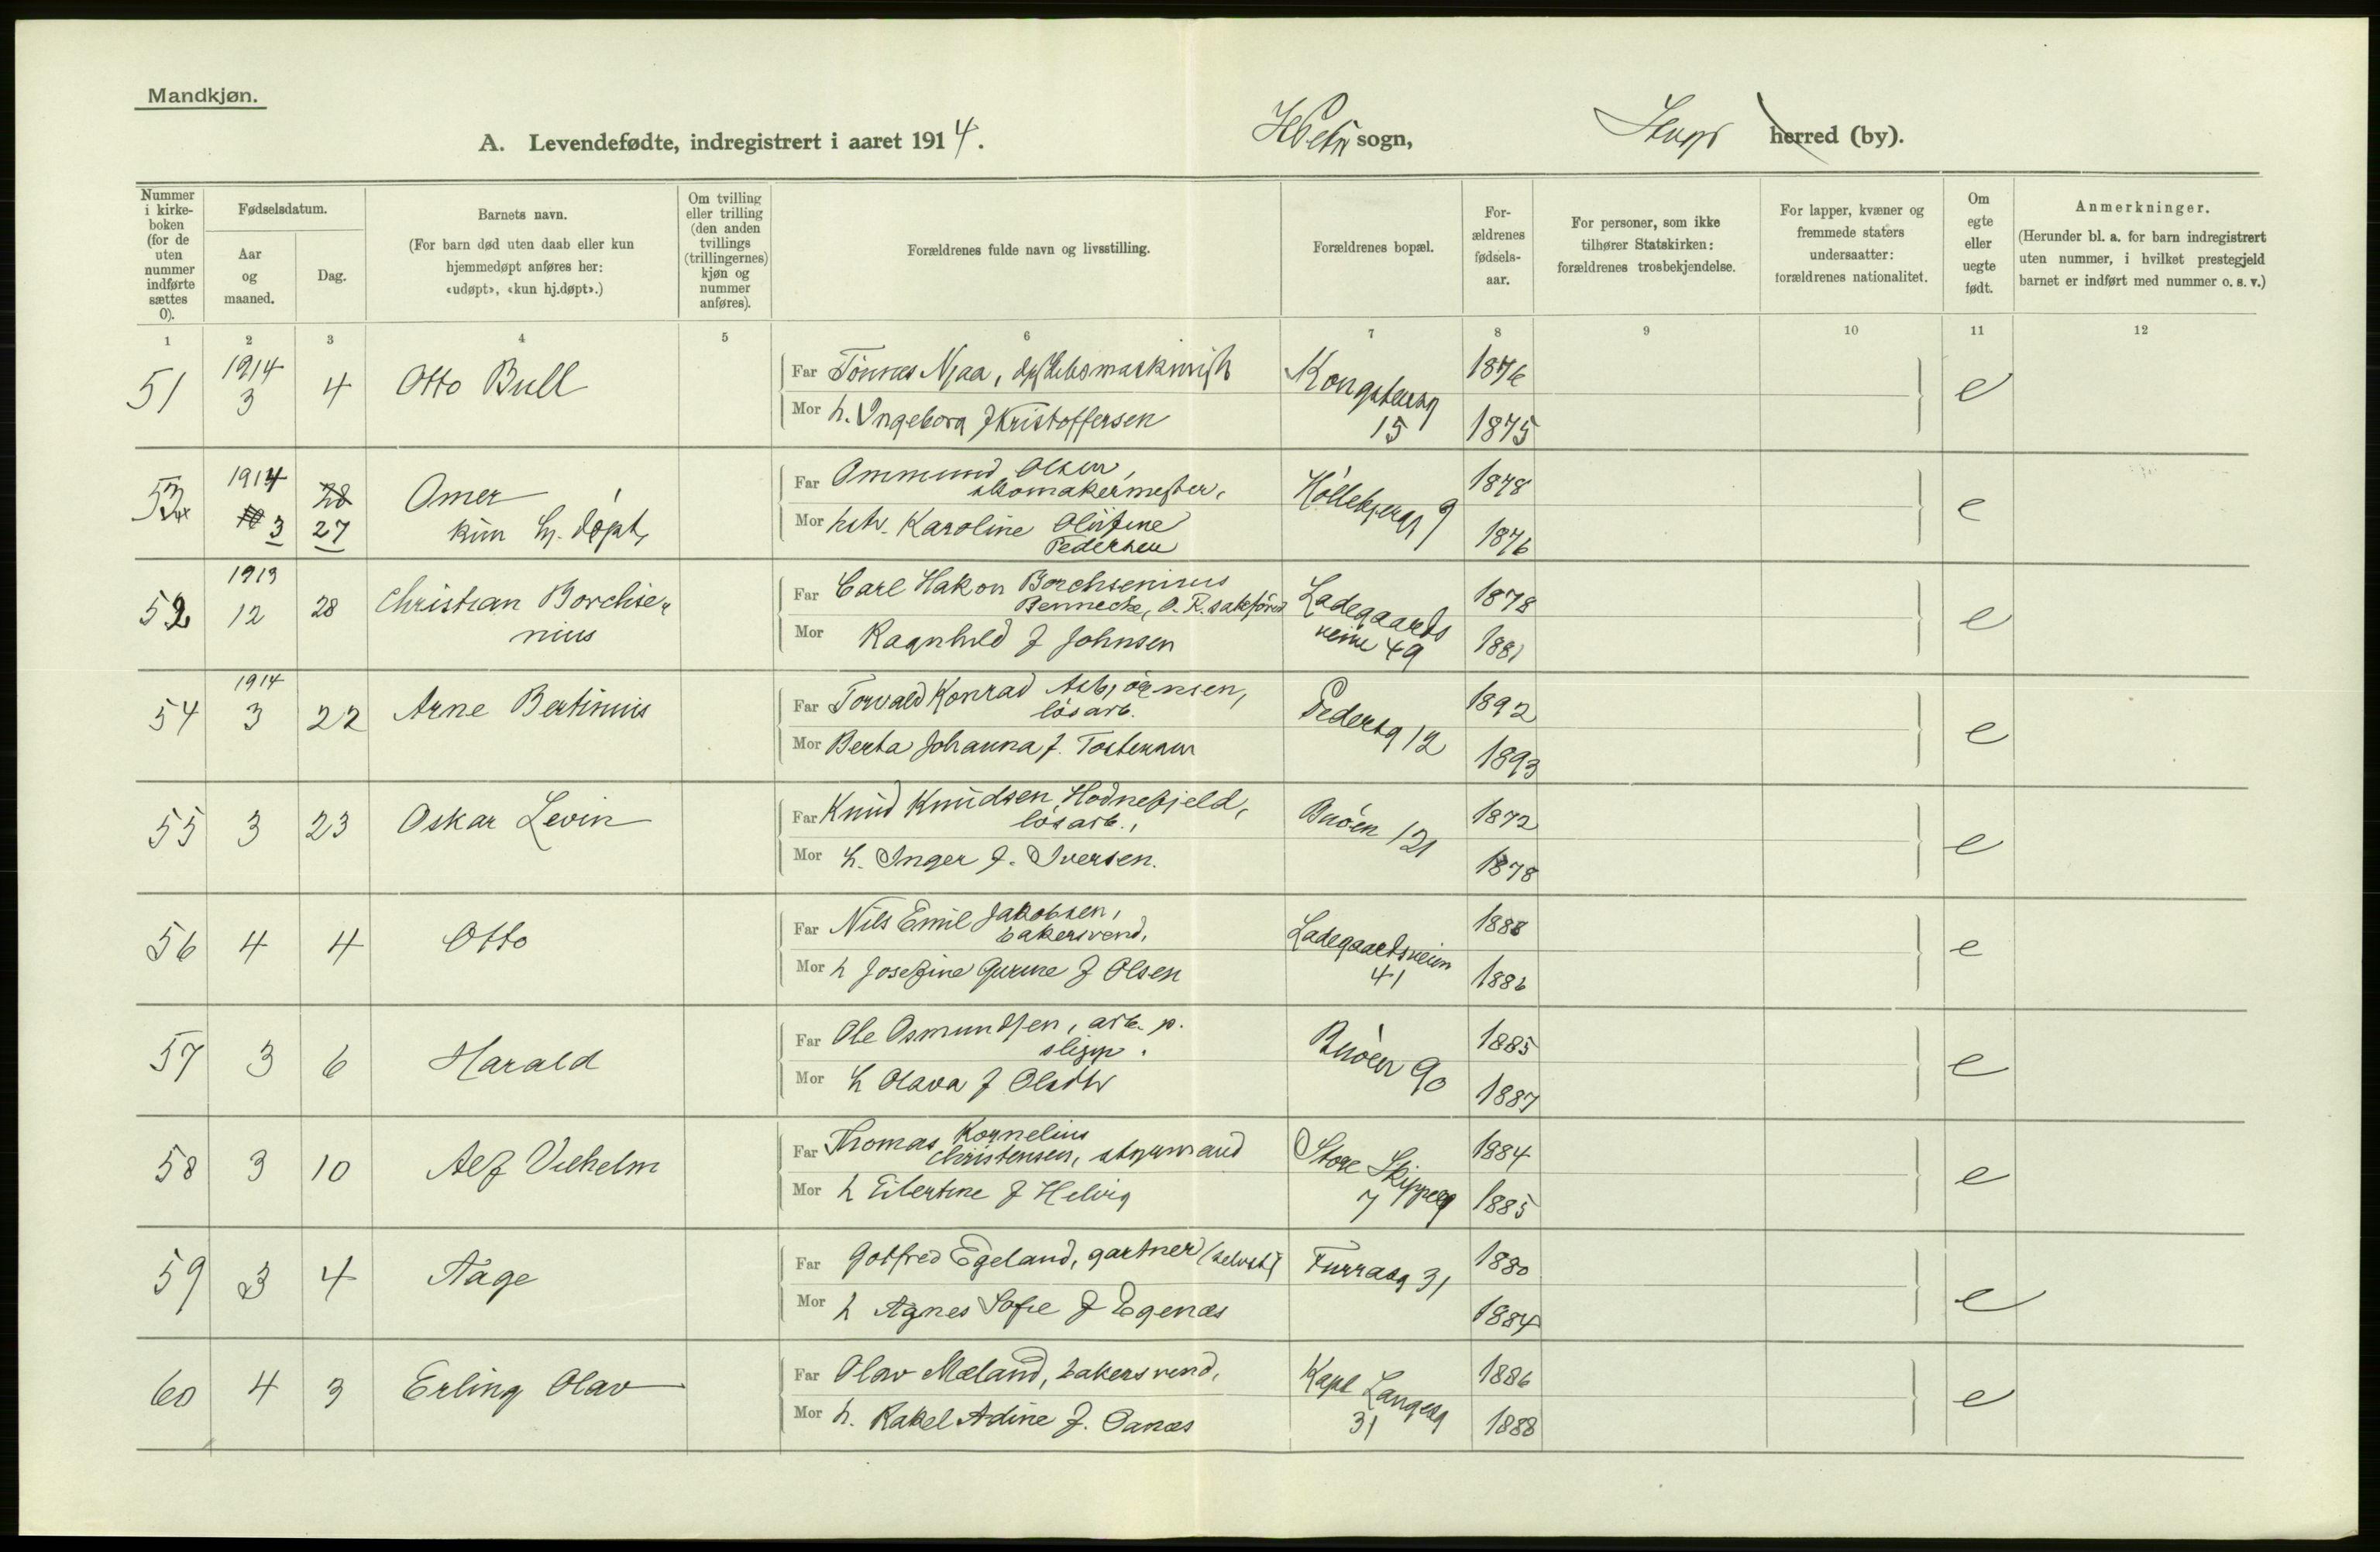 Mandkjøn.
A. Levendefødte, indregistrert i aaret 1914.
sogn,
herred (by).
Nummer i kirkeboken (for de uten nummer indførte sættes 0).
Fødselsdatum.
Aar og maaned.
Dag.
Barnets navn.
(For barn død uten daab eller kun hjemmedøpt anføres her: «udøpt», «kun hj.døpt».)
Om tvilling eller trilling (den anden tvillings (trillingernes) kjøn og nummer anføres).
Forældrenes fulde navn og livsstilling.
Forældrenes bopæl.
Forældrenes fødselsaar.
For personer, som ikke tilhører Statskirken: forældrenes trosbekjendelse.
For lapper, kvæner og fremmede staters undersaatter: forældrenes nationalitet.
Om egte eller uegte født.
Anmerkninger.
(Herunder bl. a. for barn indregistrert uten nummer, i hvilket prestegjeld barnet er indført med nummer o. s. v.)
1 2 3 4 5 6 7 8 9 10 11 12
51 1914 3 4 Otto Bull
Far Tönnes Njaa,
Mor h. Ingeborg f Kristoffersen
Kongsteinsg 15
1876
1875
e
53 1914 3 28 27 Omer
kun hj. døpt,
Far Ommund Olsen, skomakermester,
Mor hstr. Karoline Olufine Pedersen
9
1878
1876
e
52 1913 12 28 Christian Borchsenius
Far Carl Hakon Borchsenius Bennecke, O. R. sakfører
Mor Ragnhild f Johnsen
Ladegaardsveien 49
1878
1881
e
54 1914 3 22 Arne Bertinius
Far Torvald Konrad Asbjörnsen, lösarb.
Mor Berta Johanna f. Tostensen
Pedersg 12
1892
1893
e
55 3 23 Oskar Levin
Far Knud Knudsen Hodnefjeld, lösarb.,
Mor h. Inger f. Iversen.
Buöen 121
1872
1878
e
56 4 4 Otto
Far Nils Emil Jakobsen, bakersvend,
Mor h Josefine Gurine f Olsen
Ladegaardsveien 41
1888
1886
e
57 3 6 Harald
Far Ole Osmundsen, arb. p. slipp.
Mor h Olava f Olsdtr
Buöen 90
1885
1887
e
58 3 10 Alf Vilhelm
Far Thomas Kornelius Christensen, styrmand
Mor h Eilertine f Helvig
Store Skipperg 7
1884
1885
e
59 3 4 Aage
Far Gotfred Egeland, gartner (selvst)
Mor h Agnes Sofie f Egenæs
Furrasg 31
1880
1884
e
60 4 3 Erling Olav
Far Olav Mæland, bakersvend,
Mor h. Rakel Adine f. Sanæs
Kapt Langesg 31
1886
1888
e